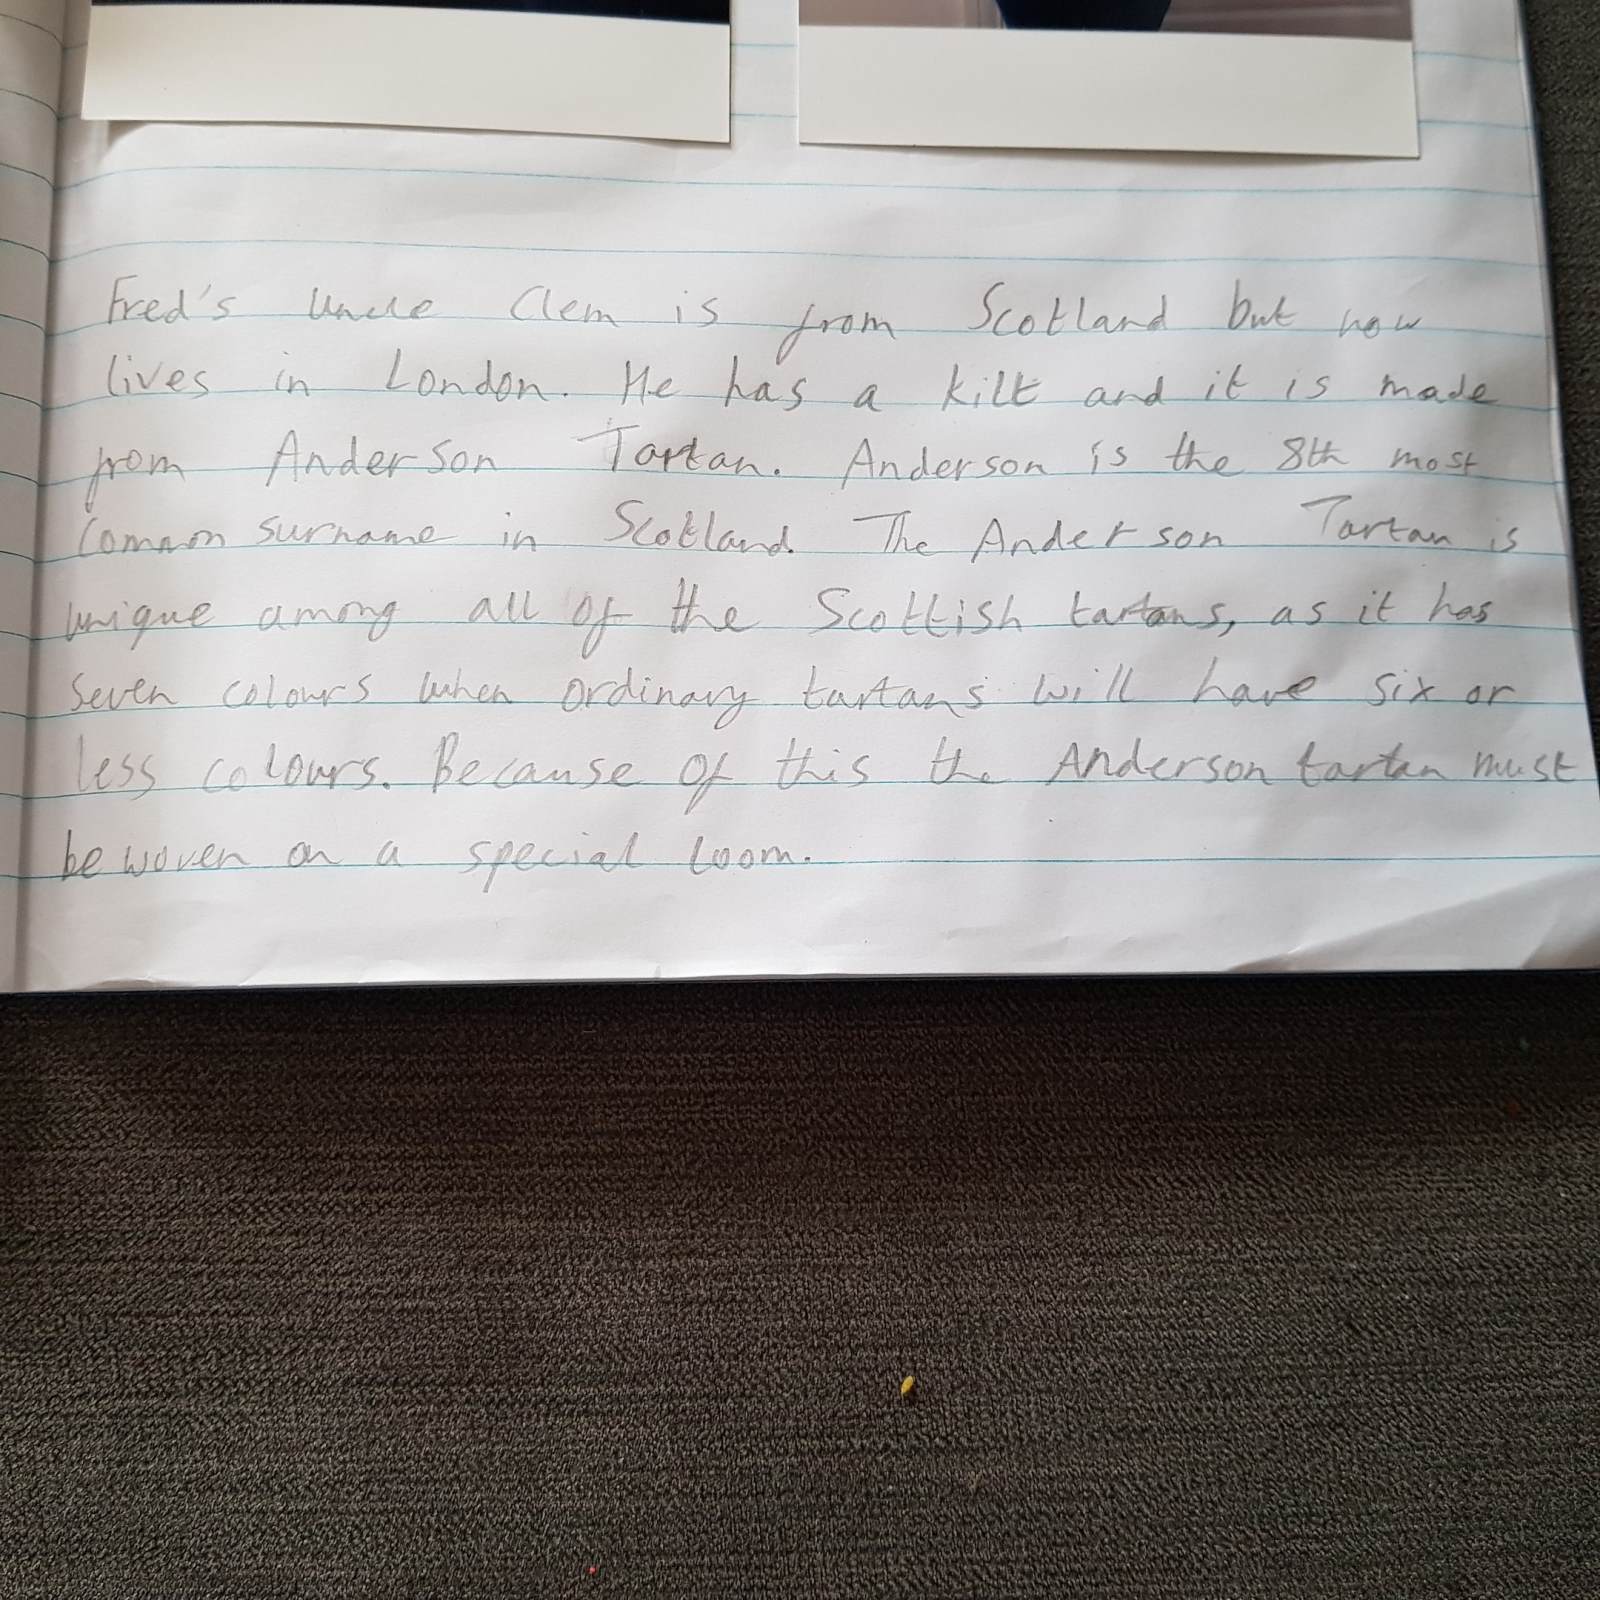 Fred's Uncle Clem is from Scotland but now
lives in London. He has a kilt and it is made
from Anderson Tartan. Anderson is the 8th most
common surname in Scotland. The Anderson Tartan is
unique among all of the Scottish tartans, as it has
seven colours when ordinary tartans will have six or
less colours. Because of this the Anderson tartan must
be woven on a special loom.